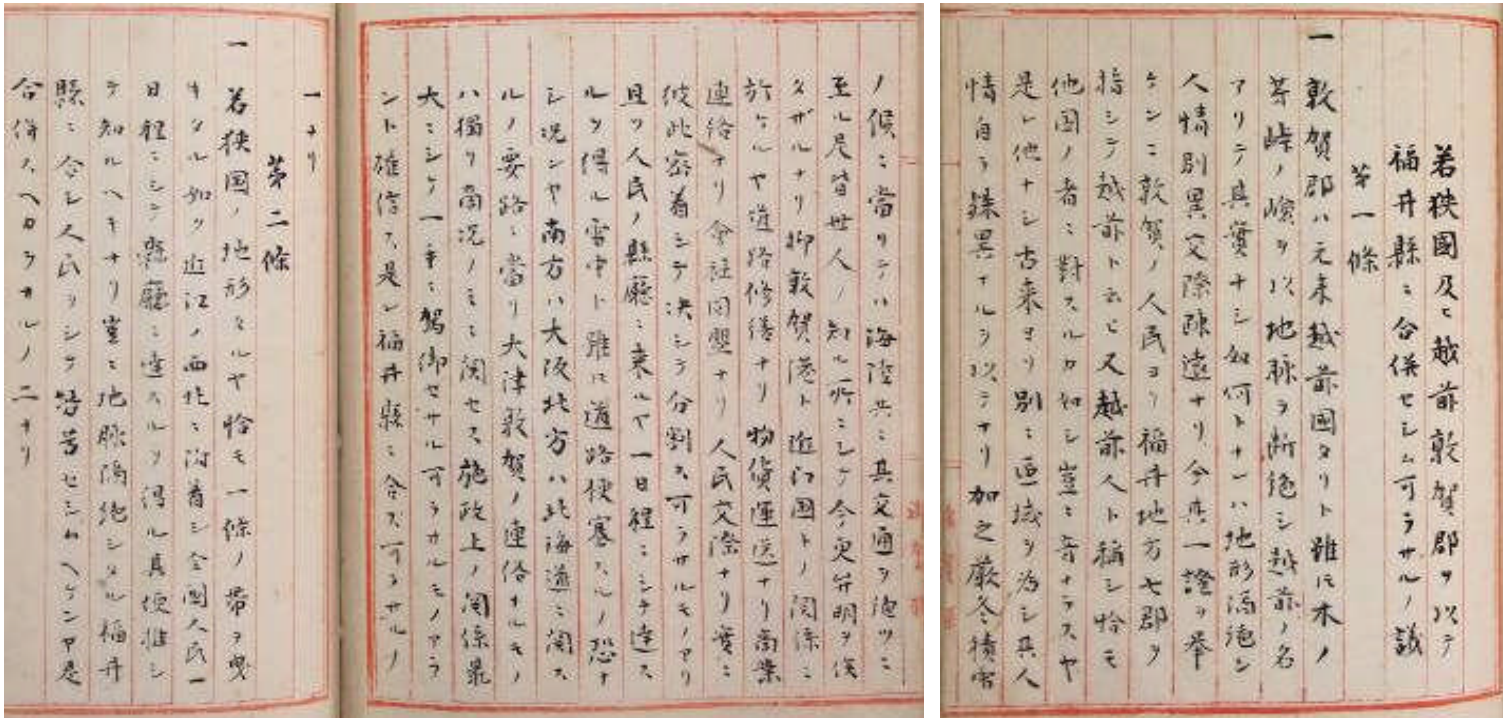 若狹國及ヒ越前敦賀郡ヲ以テ
福井縣ニ合併セシム可ラサルノ議
第一條
一 敦賀郡ハ元来越前國タリト雖𪜈木ノ
芽峠ノ嶮ヲ以地脉ヲ断絶シ越前ノ名
アリテ其實ナシ如何トナレハ地形隔絶シ
人情別異交際踈遠ナリ今其一證ヲ挙
ケンニ敦賀ノ人民ヨリ福井地方七郡ヲ
指シテ越前ト云ヒ又越前人ト稱シ恰モ
他国ノ者ニ對スルカ如シ豈ニ啻ナラスヤ
是レ他ナシ古来ヨリ別ニ區域ヲ為シ其人
情自ラ殊異ナルヲ以テナリ加之厳冬積雪
ノ候ニ當リテハ海陸共ニ其交通ヲ絶ツニ
至ル是皆世人ノ知ル所ニシテ今更弁明ヲ俟
タザルナリ抑敦賀港ト近江国トノ関係ニ
於ケルヤ道路修繕ナリ物貨運送ナリ商業
連絡ナリ會社同盟ナリ人民交際ナリ實ニ
彼此密着シテ决シテ分割ス可ラサルモノアリ
且ツ人民ノ縣廳ニ来ルヤ一日程ニシテ達ス
ルヲ得ル雪中ト雖𪜈道路梗塞スルノ恐ナ
シ况ンヤ南方ハ大阪北方ハ北海道ニ関ス
ルノ要路ニ當リ大津敦賀ノ連絡ナルモノ
ハ獨リ商况ノミニ関セス施政上ノ関係最
大ニシテ一手ニ駕御セサル可ラサルモノアラ
ント確信ス是レ福井縣ニ合ス可ラサルノ
一ナリ
第二條
一 若狹国ノ地形タルヤ恰モ一條ノ帯ヲ曳
キタル如ク近江ノ西北ニ附着シ全國人民一
日程ニシテ縣廳ニ達スルヲ得ル其便推シ
テ知ルヘキナリ豈ニ地脉隔絶シタル福井
縣ニ合シ人民ヲシテ困苦セシムヘケンヤ是
合併スヘカラサルノ二ナリ